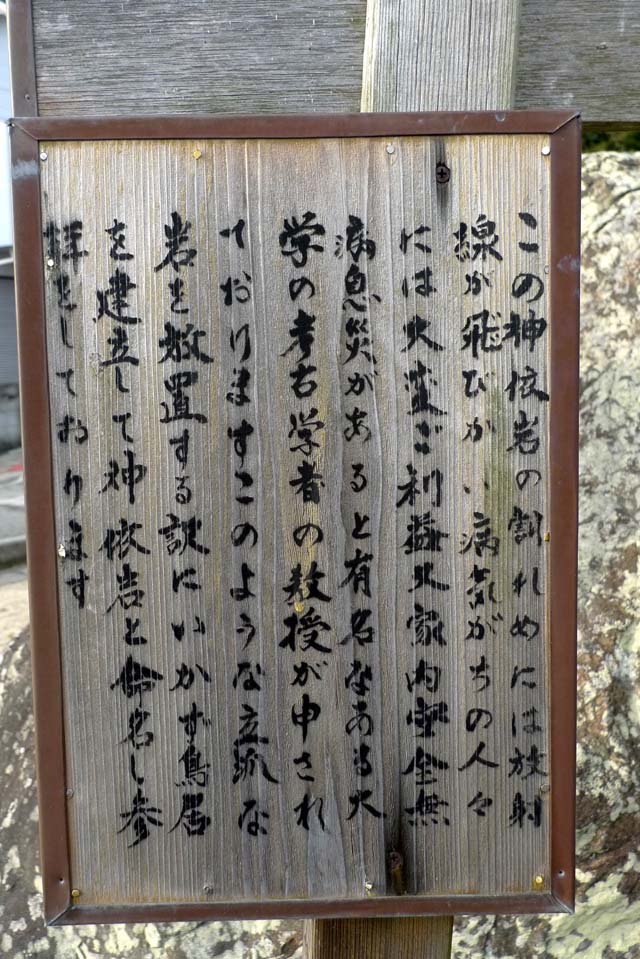 この神依岩の割れめには放射
線が飛びかい病気がちの人々
には大変ご利益又家内安全無
病息災があると有名なある大
学の考古学者の教授が申され
ておりますこのような立派な
岩を放置する訳にいかず鳥居
を建立して神依岩と命名し参
拝をしております